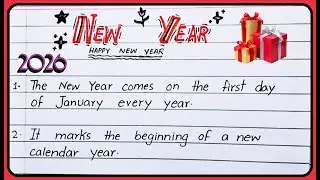 New Year
HAPPY NEW YEAR
2026
1. The New Year comes on the first day
of January every year.
2. It marks the beginning of a new
calendar year.